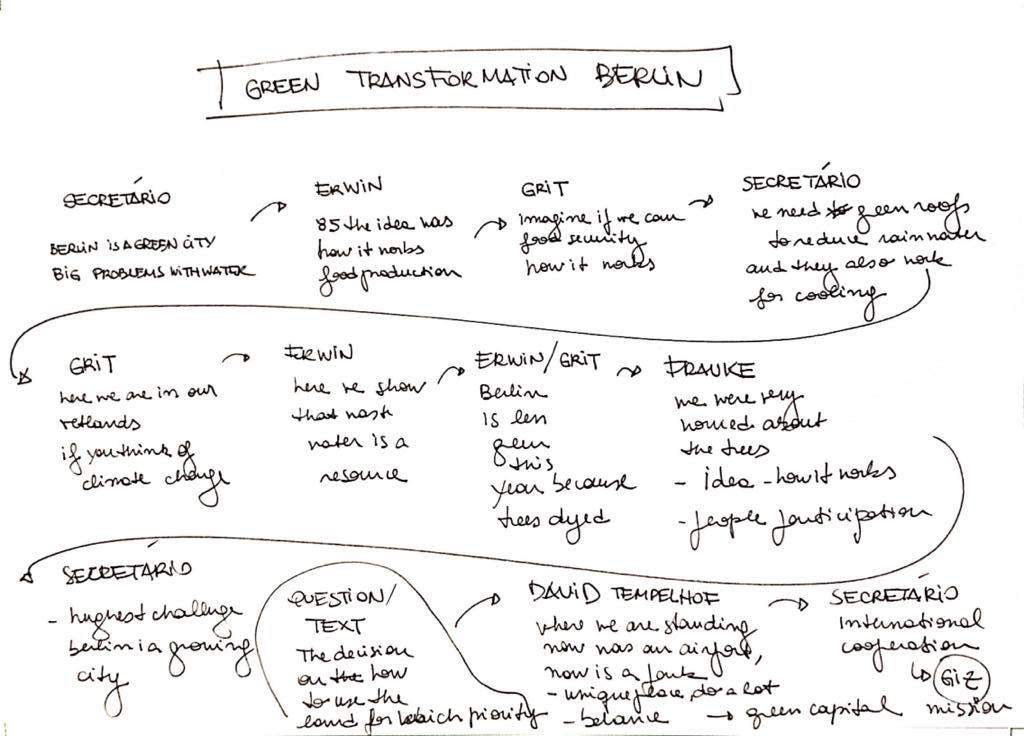 GREEN TRANSFORMATION BERLIN
SECRETÁRIO
BERLIN IS A GREEN CITY
BIG PROBLEMS WITH WATER
ERWIN
85 the idea was
how it works
food production
GRIT
imagine if we can
food security
how it works
SECRETÁRIO
we need green roofs
to reduce rainwater
and they also work
for cooling
GRIT
here we are in our
wetlands
if you think of
climate change
ERWIN
here we show
that wast
water is a
resource
ERWIN/GRIT
Berlin
is less
green
this
year because
trees dyed
FRAUKE
we were very
worried about
the trees
- idea - how it works
- people participation
SECRETÁRIO
- hughest challenge
berlin is a growing
city
QUESTION/
TEXT
The decision
on how
to use the
land for which priority
DAVID TEMPELHOF
where we are standing
now was an airport,
now is a park
- unique place, do a lot
- balance → green capital
SECRETÁRIO
International
cooperation
↳ GIZ
mission